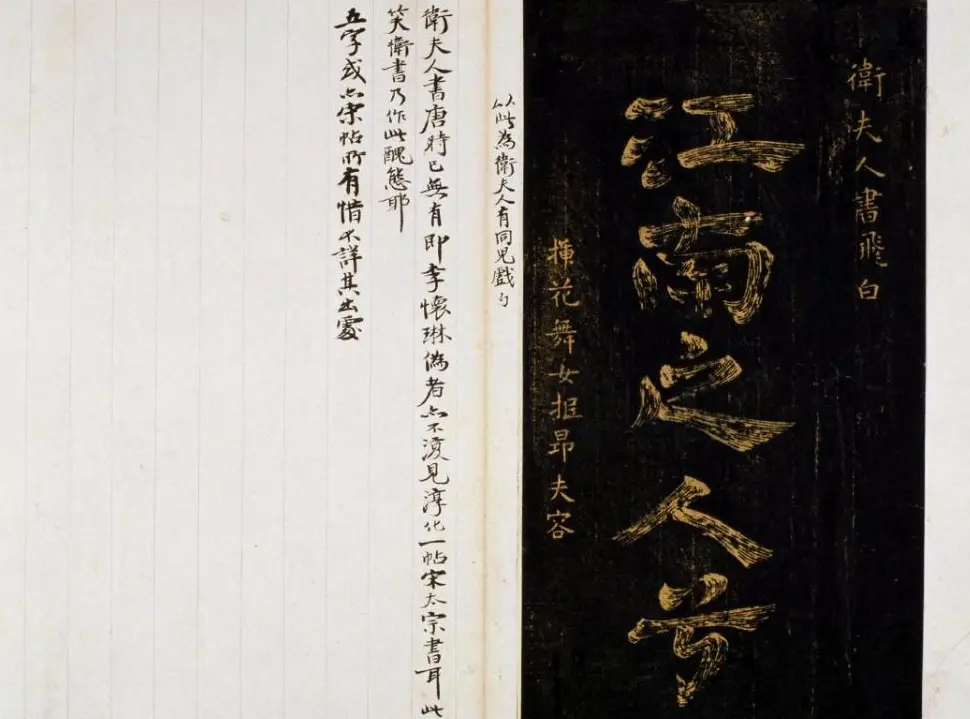 衛夫人書飛白
江南之人兮
插花舞女抵昂夫容
以此為衛夫人有同兒戲
衛夫人書唐時已無有即李懷琳偽者亦不復見淳化一帖宋太宗書耳此
笑衛書乃作此醜態耶
五字或亦宋帖所有惜不詳其出處